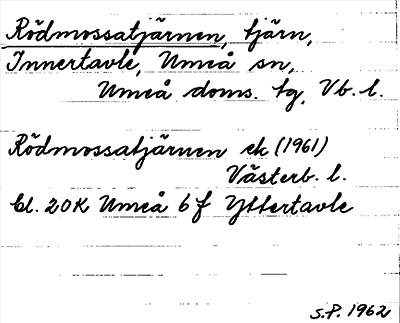 Rödmossatjärnen, tjärn,
Innertavle, Umeå sn,
Umeå doms. tg, Vb. l.
Rödmossatjärnen ek (1961)
Västerb. l.
bl. 20K Umeå 6f Yttertavle
S.P. 1962